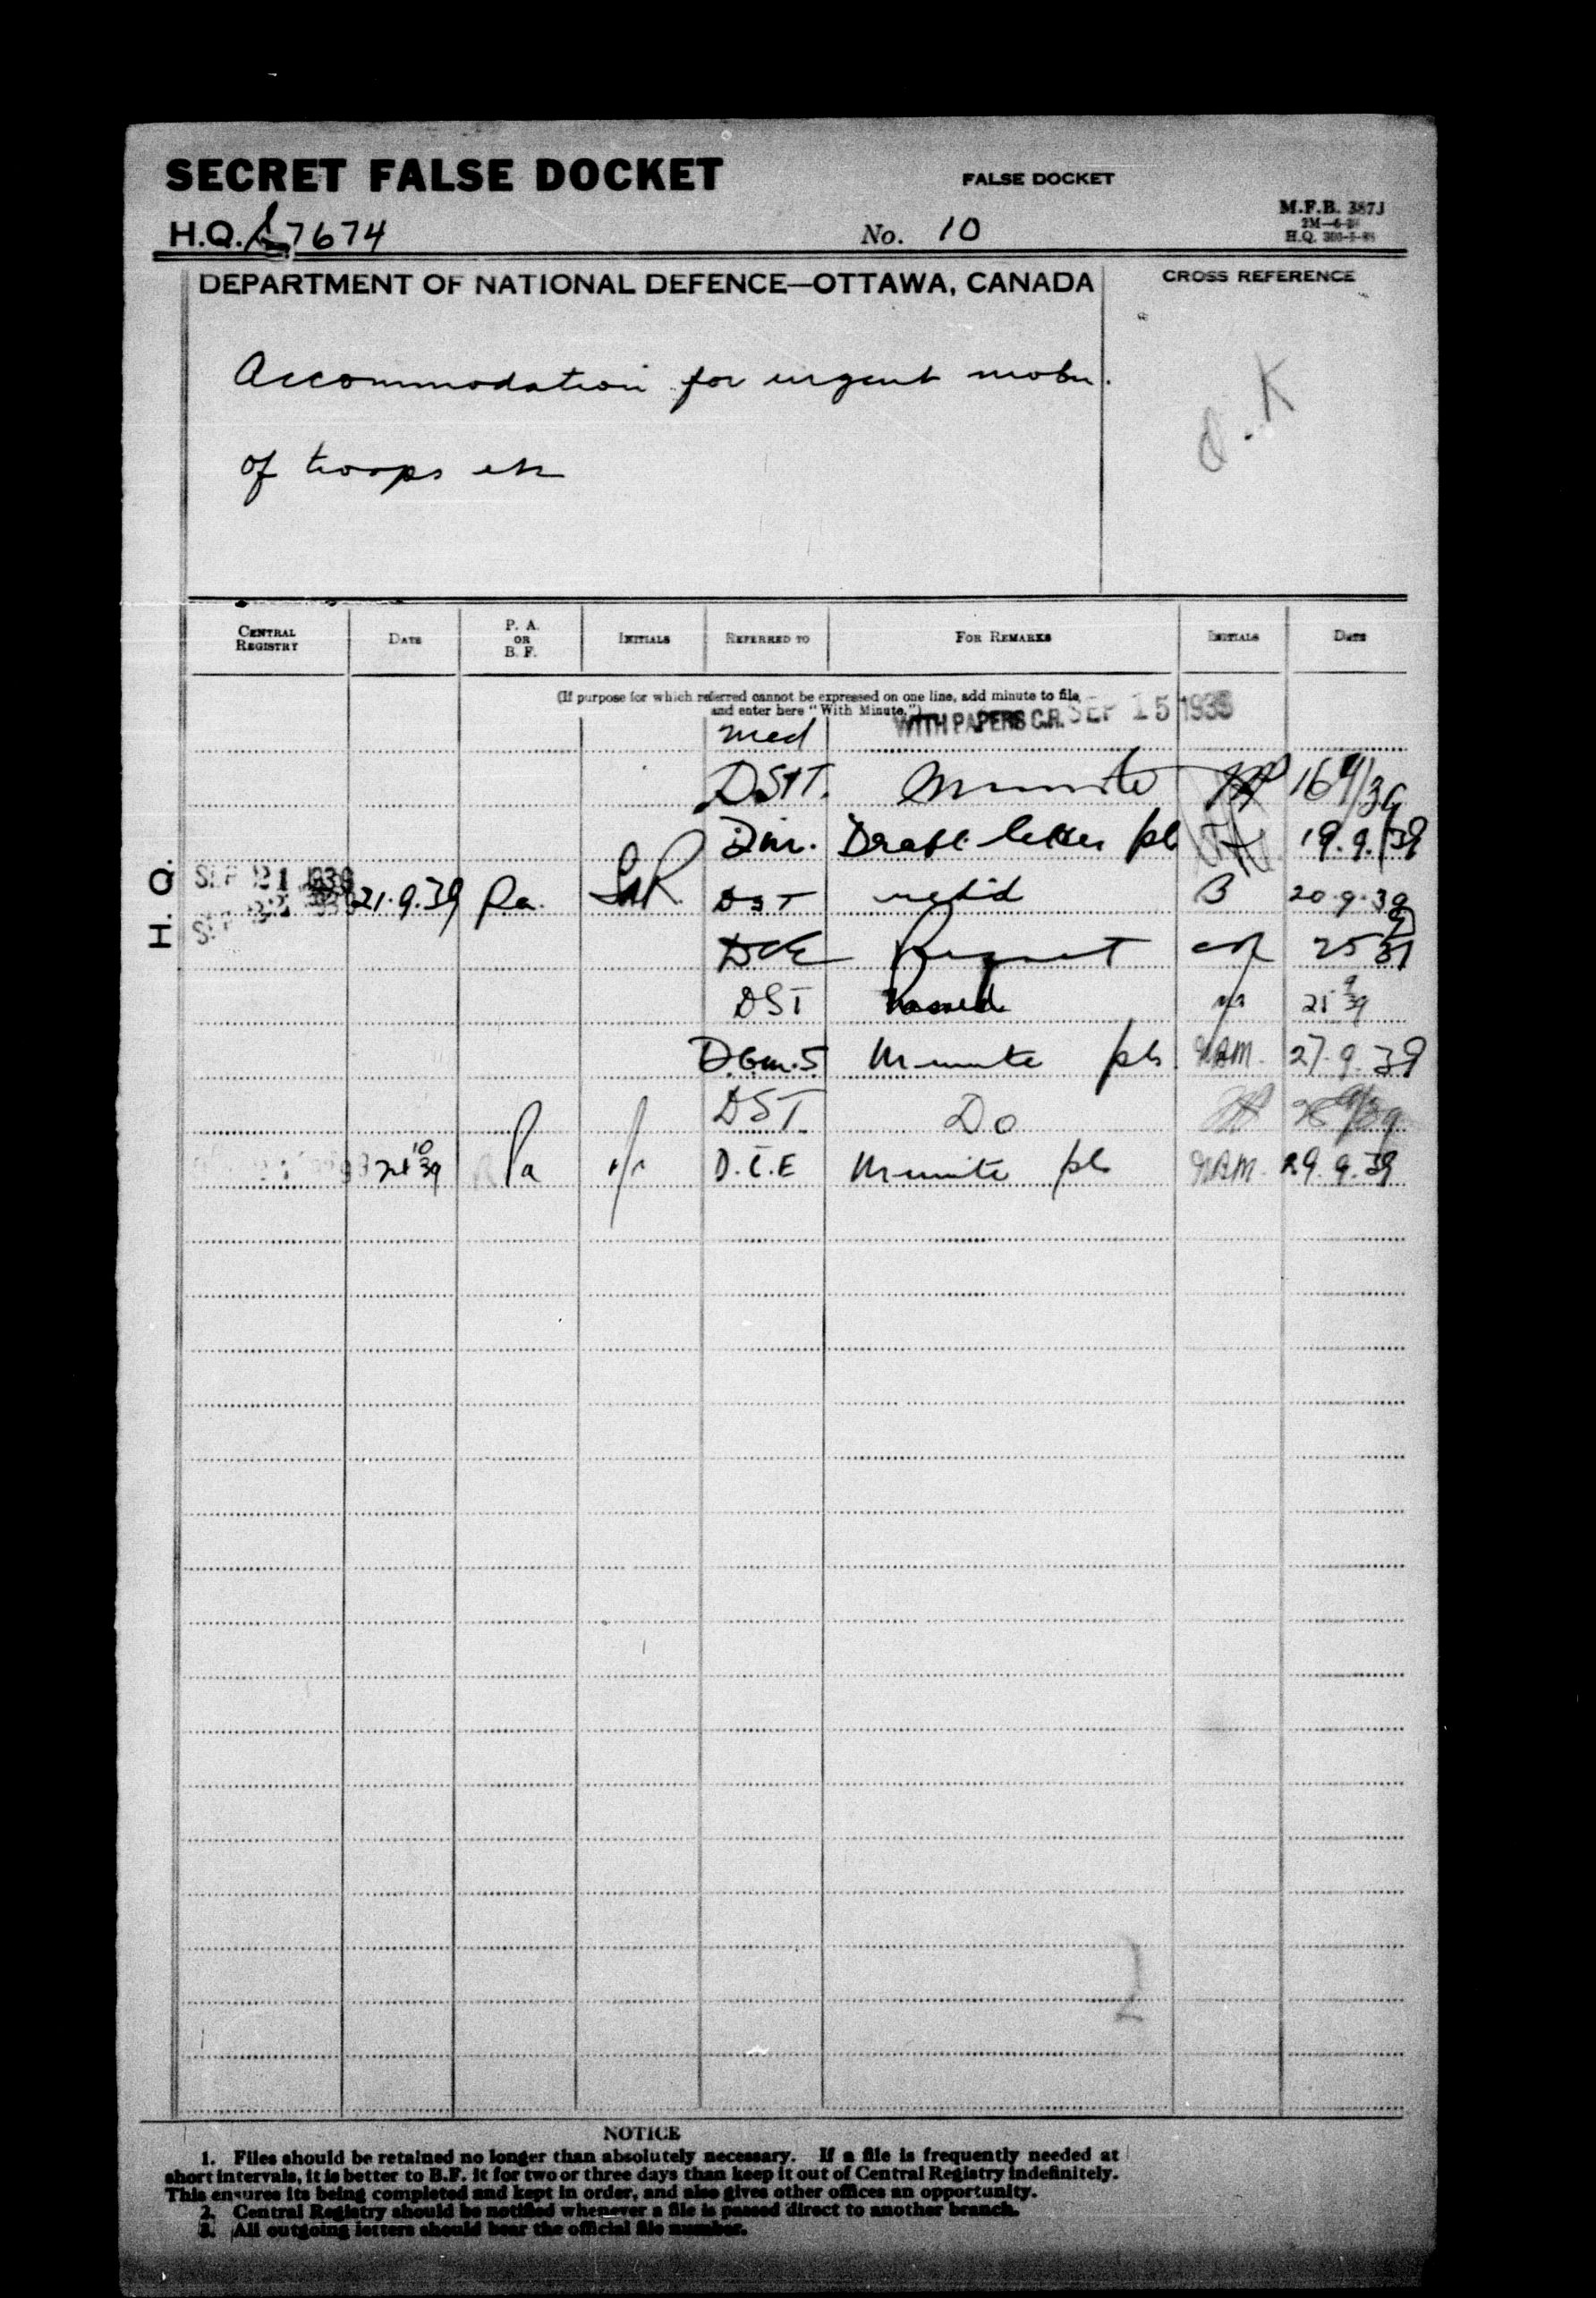 SECRET FALSE DOCKET
FALSE DOCKET
M.F.B. 387J
2M—6-
H.Q.
H.Q. S 7674
No. 10
DEPARTMENT OF NATIONAL DEFENCE—OTTAWA, CANADA
CROSS REFERENCE
Accommodation for urgent mobn.
of troops etc
O.K
CENTRAL REGISTRY DATE P. A. OR B. F. INITIALS REFERRED TO FOR REMARKS INITIALS DATE
(If purpose for which referred cannot be expressed on one line, add minute to file,
and enter here "With Minute.")
WITH PAPERS C.R. SEP 15 1939
DST. Minute 16 9/39
Draft letter pl 19.9.39
H. Q.
SEP 21 1939 21.9.39 Pa. DST B 20.9.39
SEP 22
DCE Request 25 9 39
DST Passed 9 39
D.E.m.S Minute pls 27.9.39
DST. Do
24 10 39 Pa D.C.E Minute pls 29.9.39
2
NOTICE
1. Files should be retained no longer than absolutely necessary. If a file is frequently needed at
short intervals, it is better to B.F. it for two or three days than keep it out of Central Registry indefinitely.
This ensures its being completed and kept in order, and also gives other offices an opportunity.
2. Central Registry should be notified whenever a file is passed direct to another branch.
3. All outgoing letters should bear the official file number.